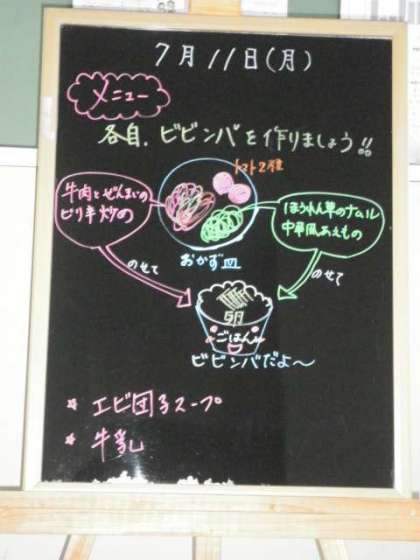 7月11日(月)
メニュー
各自、ビビンバを作りましょう!!
トマト2種
牛肉とぜんまいの
ピリ辛炒め
ほうれん草のナムル
中華風あえもの
おかず皿
のせて
のせて
ごはん
ビビンバだよ〜
* エビ団子スープ
* 牛乳